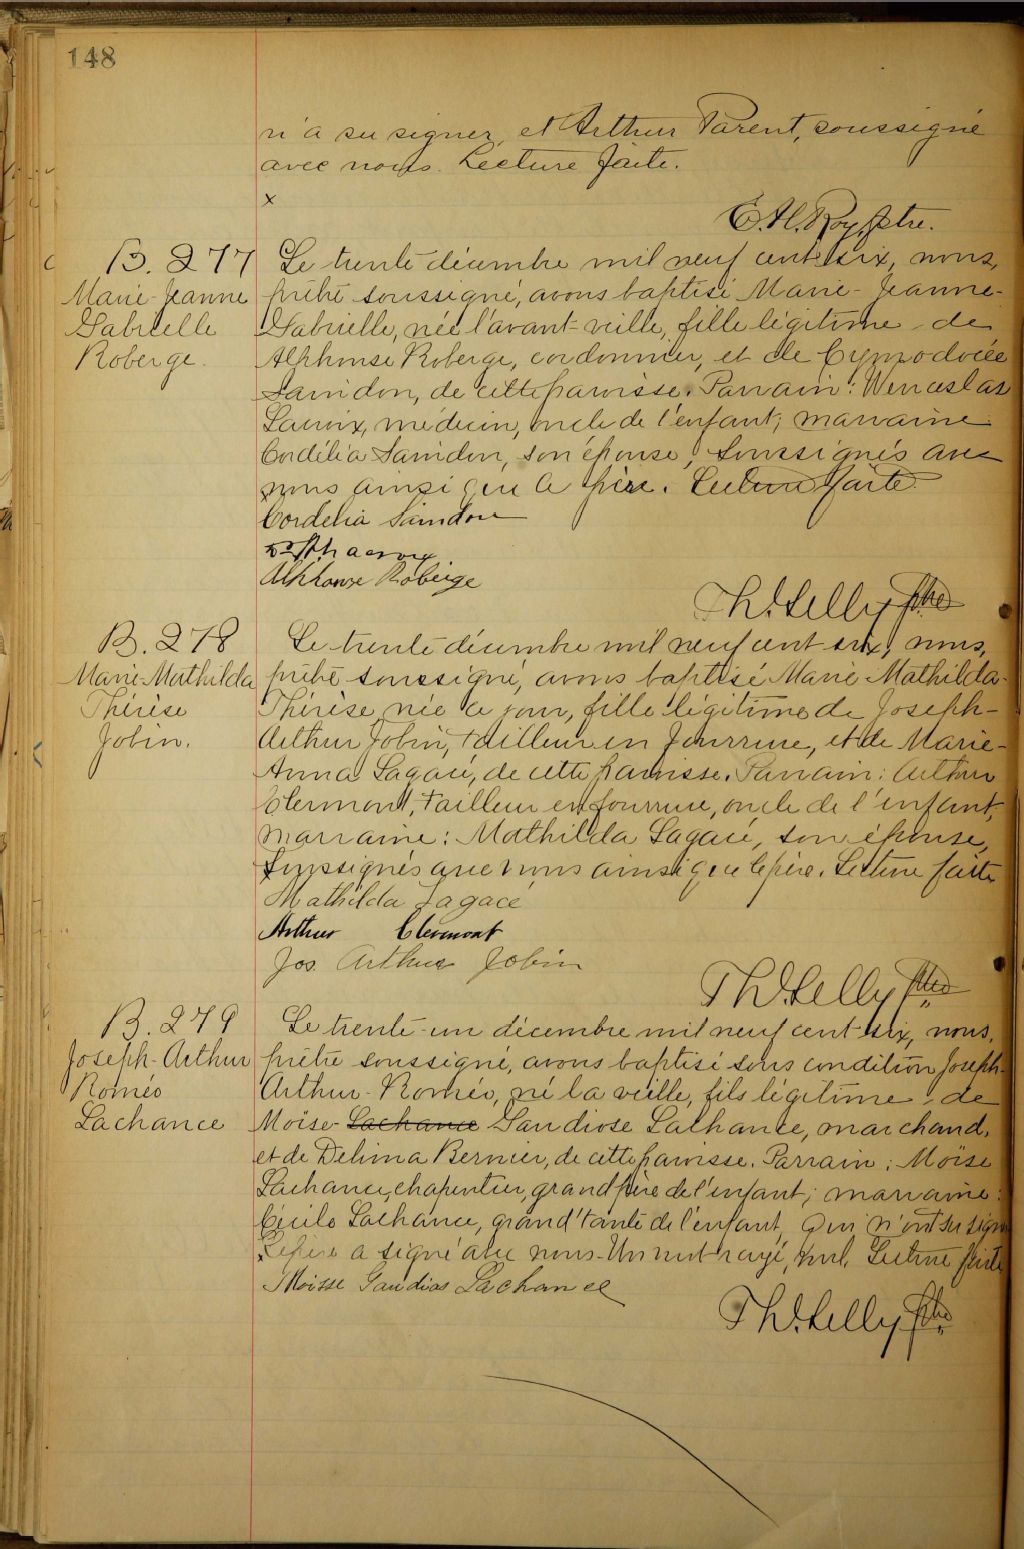 148
n'a su signer, et Arthur Parent, soussigné
avec nous. Lecture faite.
x
E. H. Roy, ptre.
B. 277
Marie-Jeanne
Gabrielle
Roberge.
Le trente décembre mil neuf cent six, nous,
prêtre soussigné, avons baptisé Marie-Jeanne-
Gabrielle, née l'avant-veille, fille légitime de
Alphonse Roberge, cordonnier, et de Cymodocée
Saindon, de cette paroisse. Parrain: Wenceslas
Lacroix, médecin, oncle de l'enfant; marraine:
Cordélia Saindon, son épouse, soussignés avec
nous ainsi que le père. Lecture faite.
Cordelia Saindon
Lacroix
Alphonse Roberge
Th. Lelly ptre
B. 278
Marie-Mathilda
Thérèse
Jobin.
Le trente décembre mil neuf cent six, nous,
prêtre soussigné, avons baptisé Marie-Mathilda-
Thérèse, née ce jour, fille légitime de Joseph-
Arthur Jobin, tailleur en fourrure, et de Marie-
Anna Lagacé, de cette paroisse. Parrain: Arthur
Clermont, tailleur en fourrure, oncle de l'enfant;
marraine: Mathilda Lagacé, son épouse,
soussignés avec nous ainsi que le père. Lecture faite
Mathilda Lagacé
Arthur Clermont
Jos Arthur Jobin
Th. Lelly ptre
B. 279
Joseph-Arthur
Roméo
Lachance
Le trente-un décembre mil neuf cent six, nous,
prêtre soussigné, avons baptisé sous condition Joseph-
Arthur-Roméo, né la veille, fils légitime de
Moïse Lachance Gaudiose Lachance, marchand,
et de Delima Bernier, de cette paroisse. Parrain: Moïse
Lachance, charpentier, grand père de l'enfant; marraine:
Cécile Lachance, grand'tante de l'enfant, qui n'ont su signer
Le père a signé avec nous. Un mot rayé, nul. Lecture faite
Moïsse Gaudias Lachance
Th. Lelly ptre